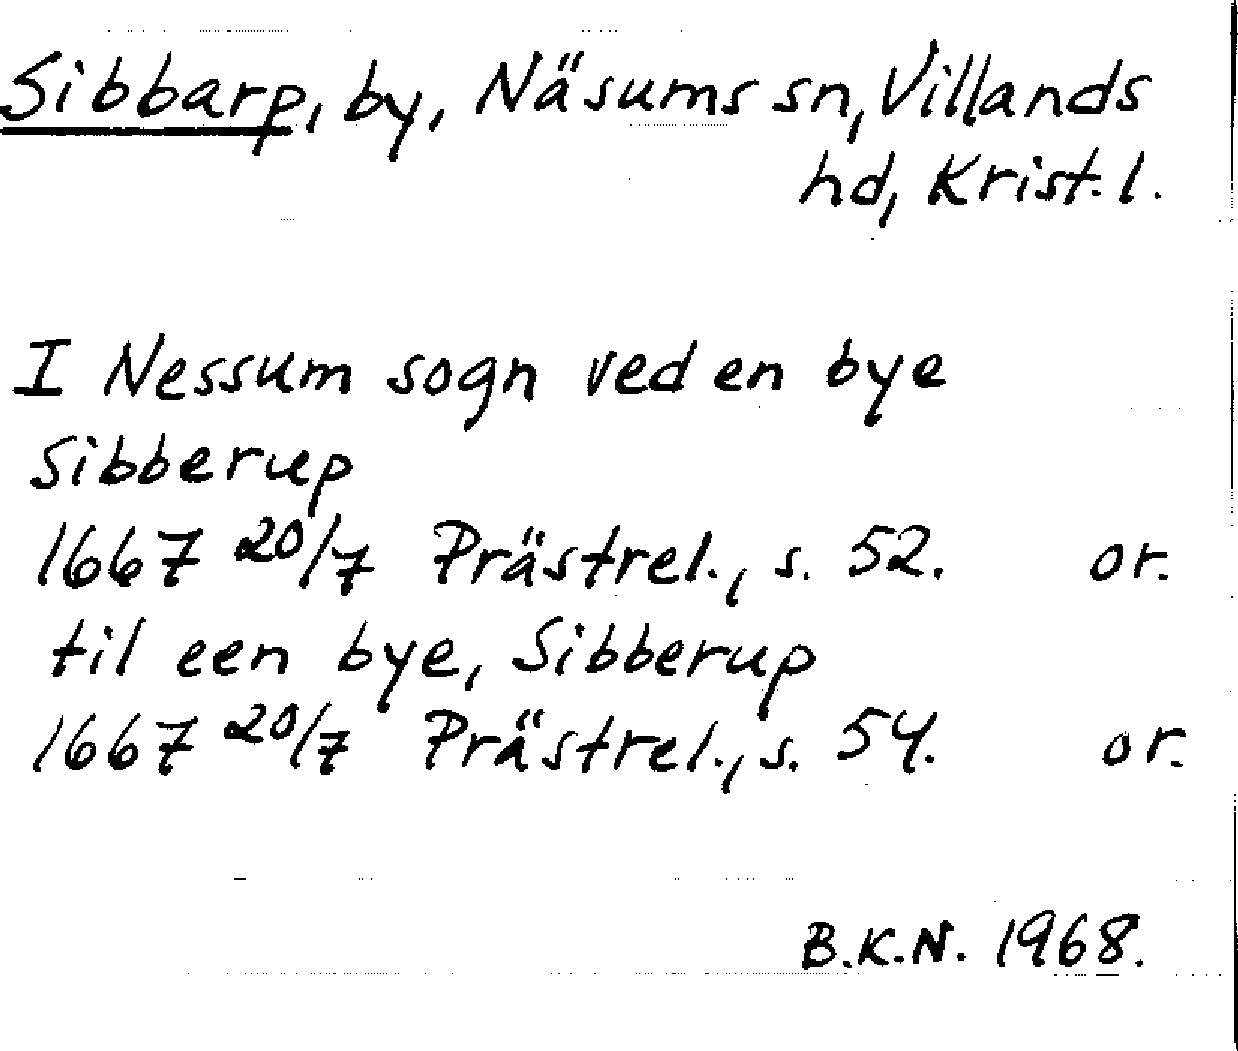 Sibbarp, by, Näsums sn, Villands
hd, Krist. l.
I Nessum sogn ved en bye
Sibberup
1667 20/7 Prästrel., s. 52. or.
til een bye, Sibberup
1667 20/7 Prästrel., s. 54. or.
B.K.N. 1968.